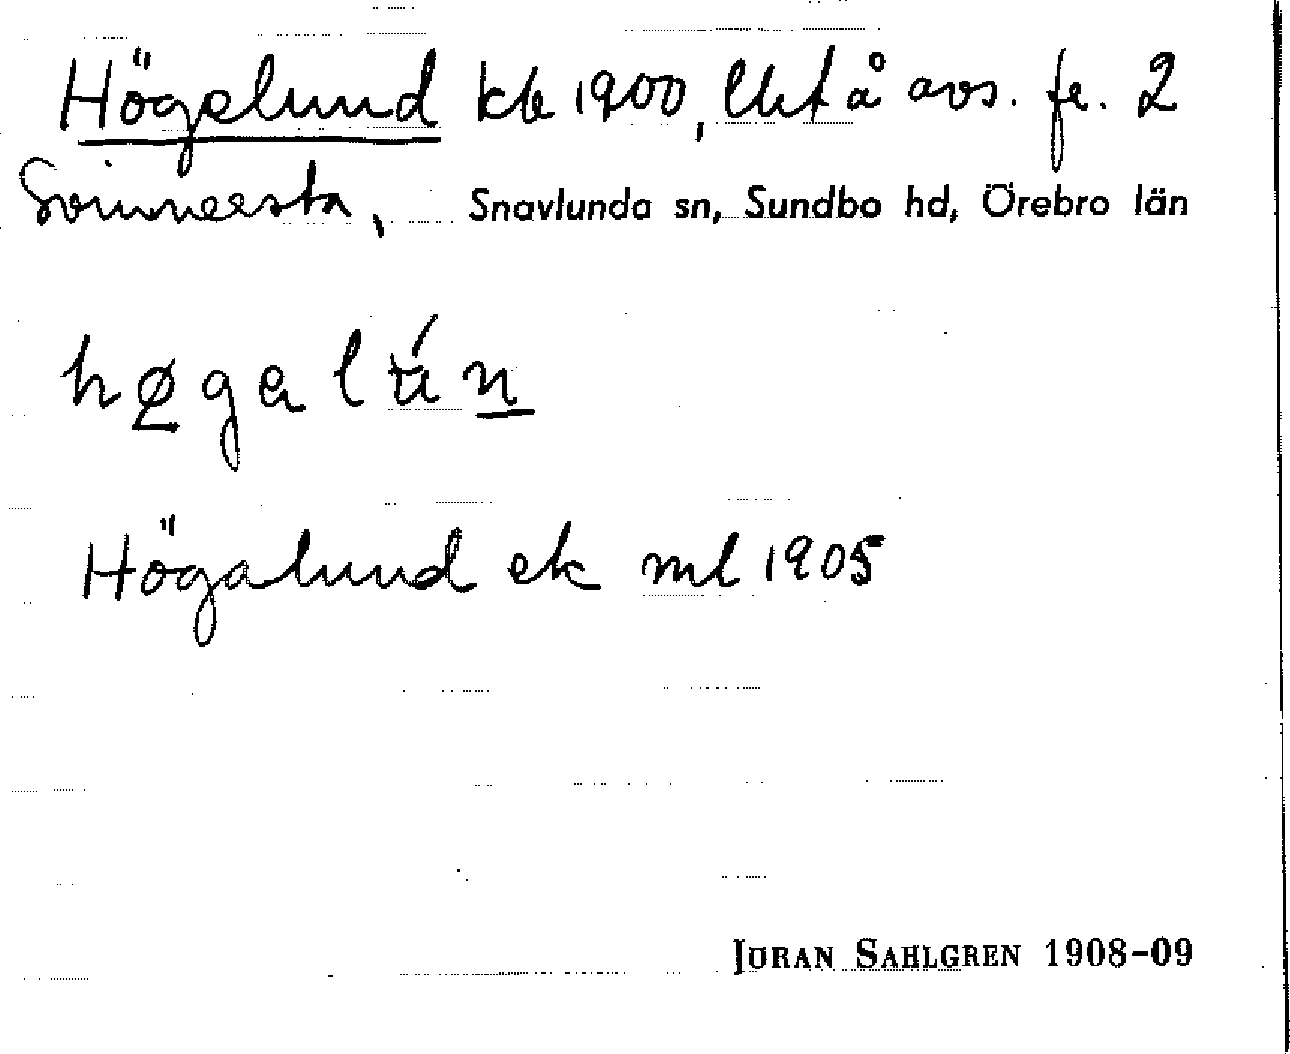 Högslund kb 1900, lht å avs. fr. 2
Svinnersta, Snavlunda sn, Sundbo hd, Örebro län
høgalún
Högalund ek ml 1905
JÖRAN SAHLGREN 1908-09